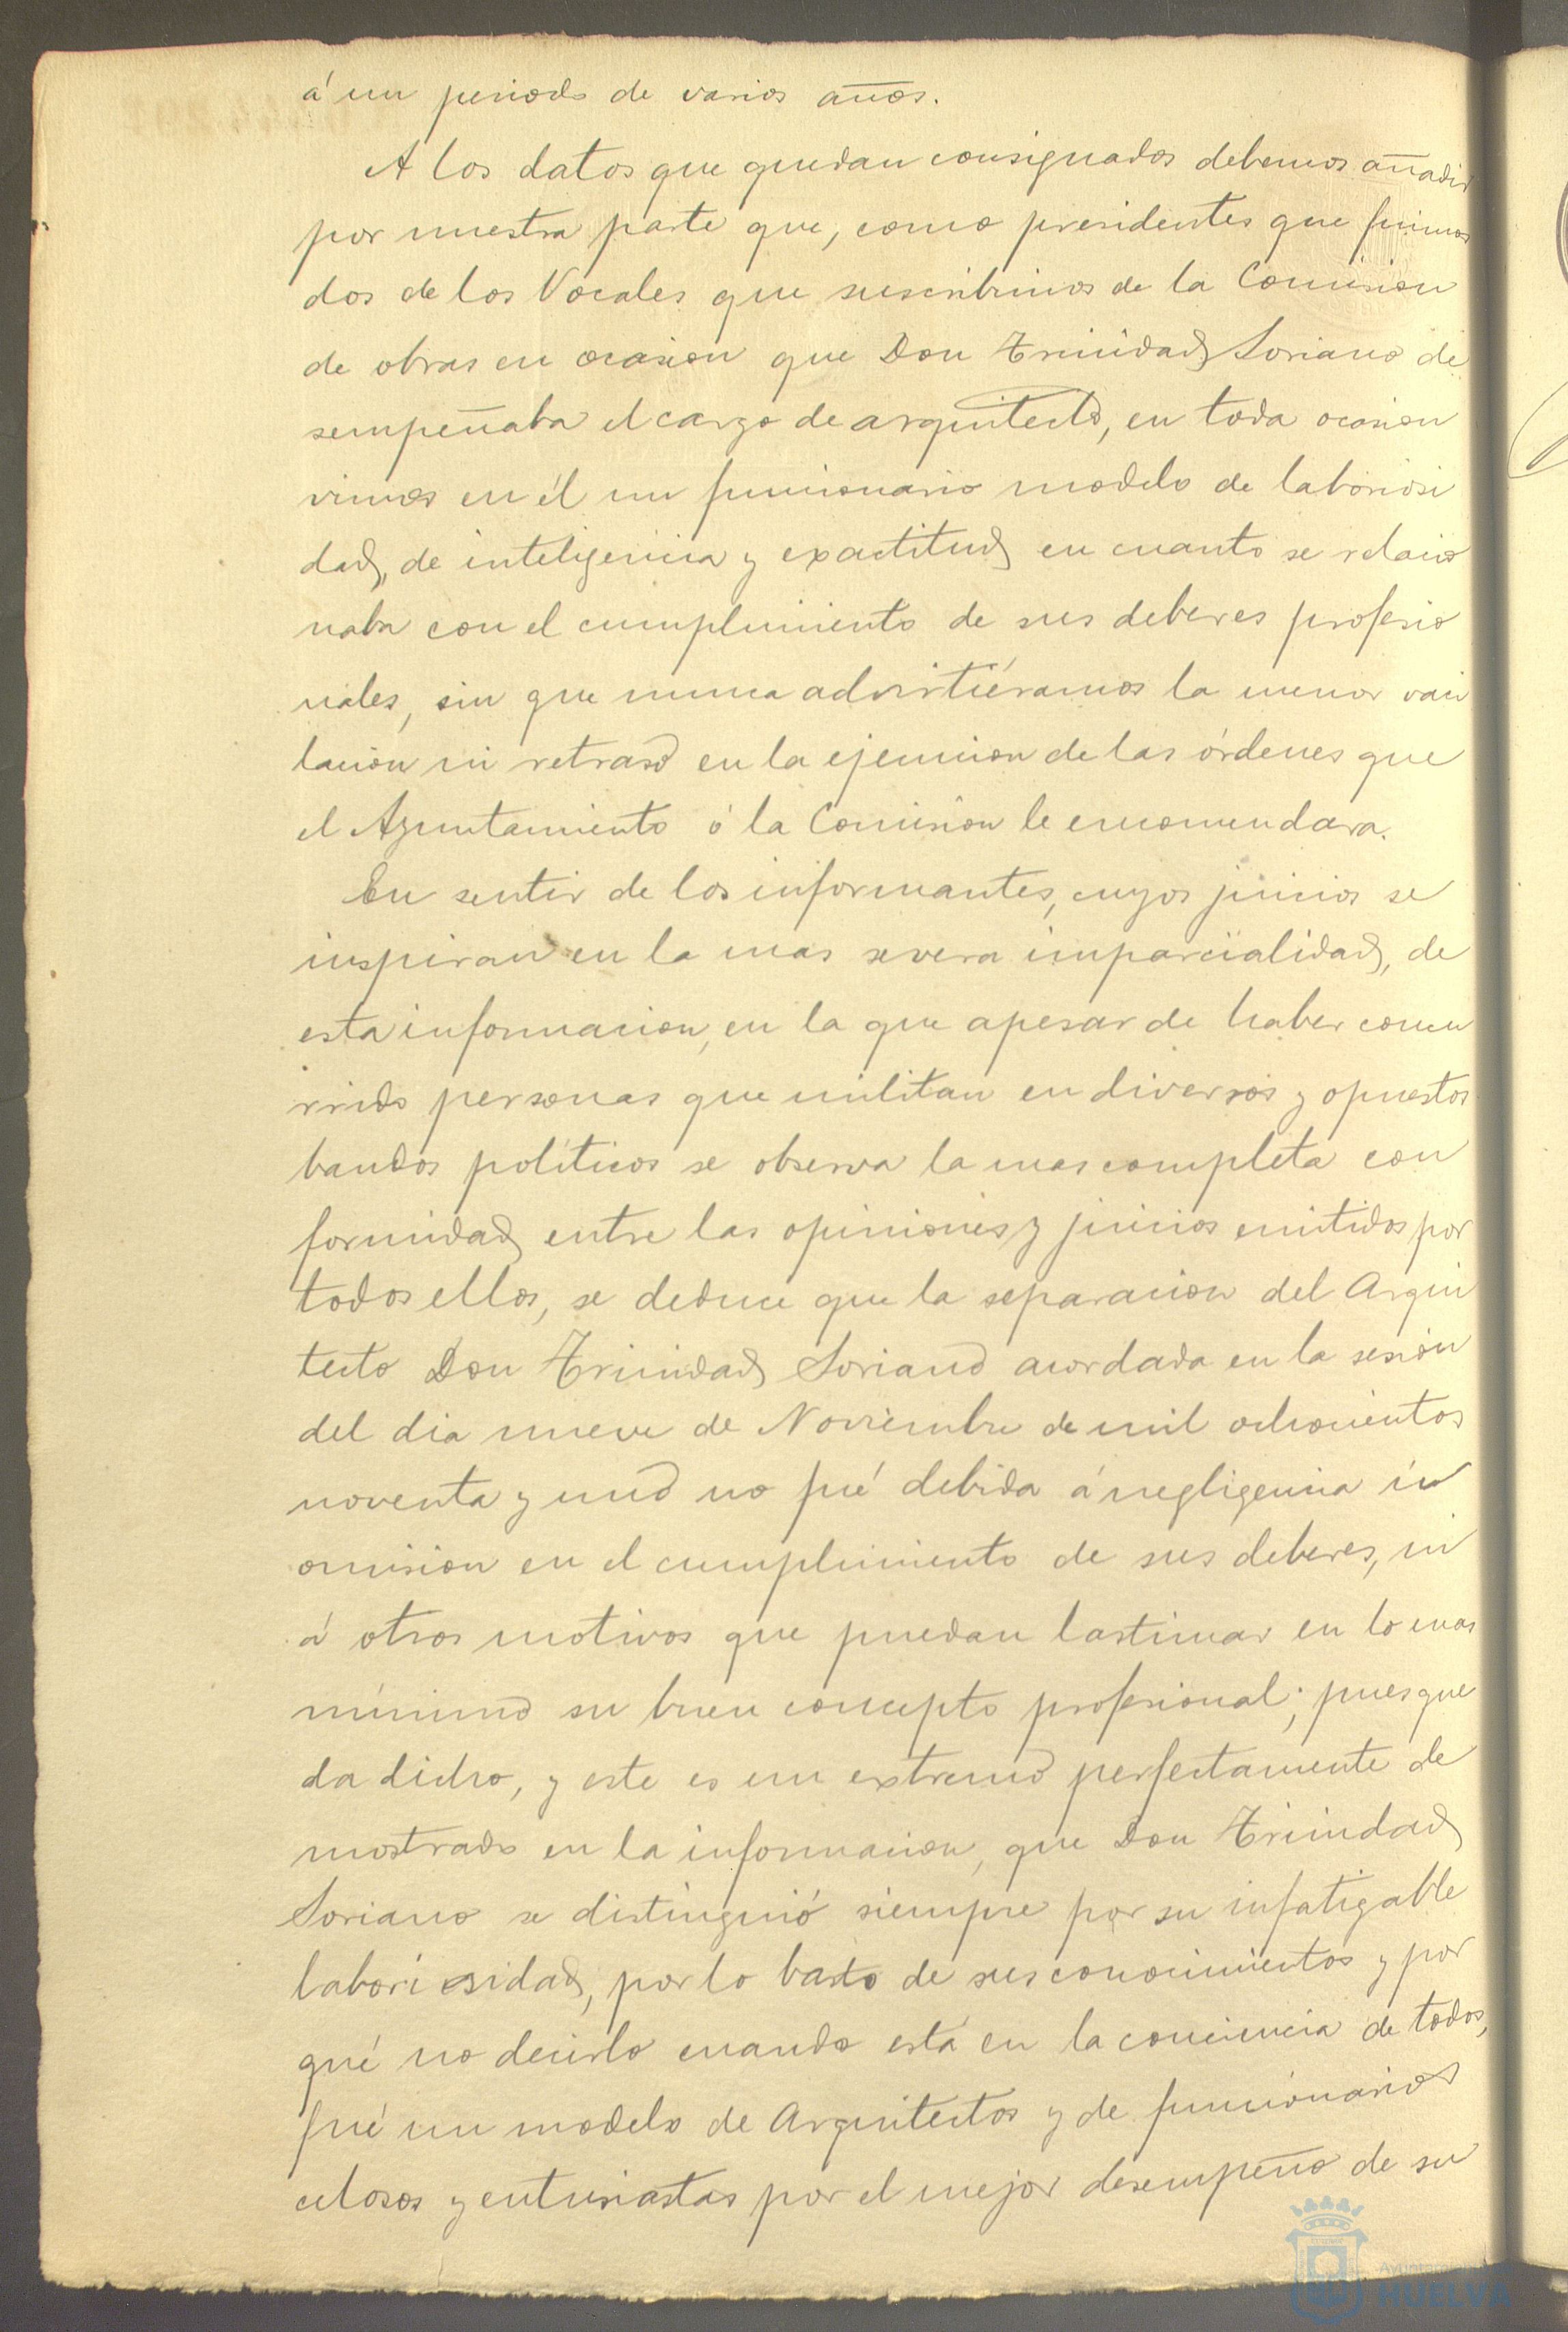 á un periodo de varios años.
A los datos que quedan consignados debemos añadir
por nuestra parte que, como presidentes que fuimos
dos de los Vocales que suscribimos de la Comision
de obras en ocasion que Don Trinidad Soriano de
sempeñaba el cargo de arquitecto, en toda ocasion
vimos en él un funcionario modelo de laboriosi
dad, de inteligencia y exactitud en cuanto se relacio
naba con el cumplimiento de sus deberes profesio
nales, sin que nunca advirtiéramos la menor vaci
lacion ni retraso en la ejecucion de las órdenes que
el Ayuntamiento ó la Comision le encomendara.
En sentir de los informantes, cuyos juicios se
inspiran en la mas severa imparcialidad, de
esta informacion, en la que apesar de haber concu
rrido personas que militan en diversos y opuestos
bandos políticos se observa la mas completa con
formidad entre las opiniones y juicios emitidos por
todos ellos, se deduce que la separacion del Arqui
tecto Don Trinidad Soriano acordada en la sesion
del dia nueve de Noviembre de mil ochocientos
noventa y uno no fué debida á negligencia ú
omision en el cumplimiento de sus deberes, ni
á otros motivos que puedan lastimar en lo mas
mínimo su buen concepto profesional; pues que
da dicho, y este es un extremo perfectamente de
mostrado en la informacion, que Don Trinidad
Soriano se distinguió siempre por su infatigable
laboriosidad, por lo basto de sus conocimientos y por
qué no decirlo cuando está en la conciencia de todos,
fué un modelo de Arquitectos y de funcionarios
celosos y entusiastas por el mejor desempeño de su
Ayuntamiento de
HUELVA